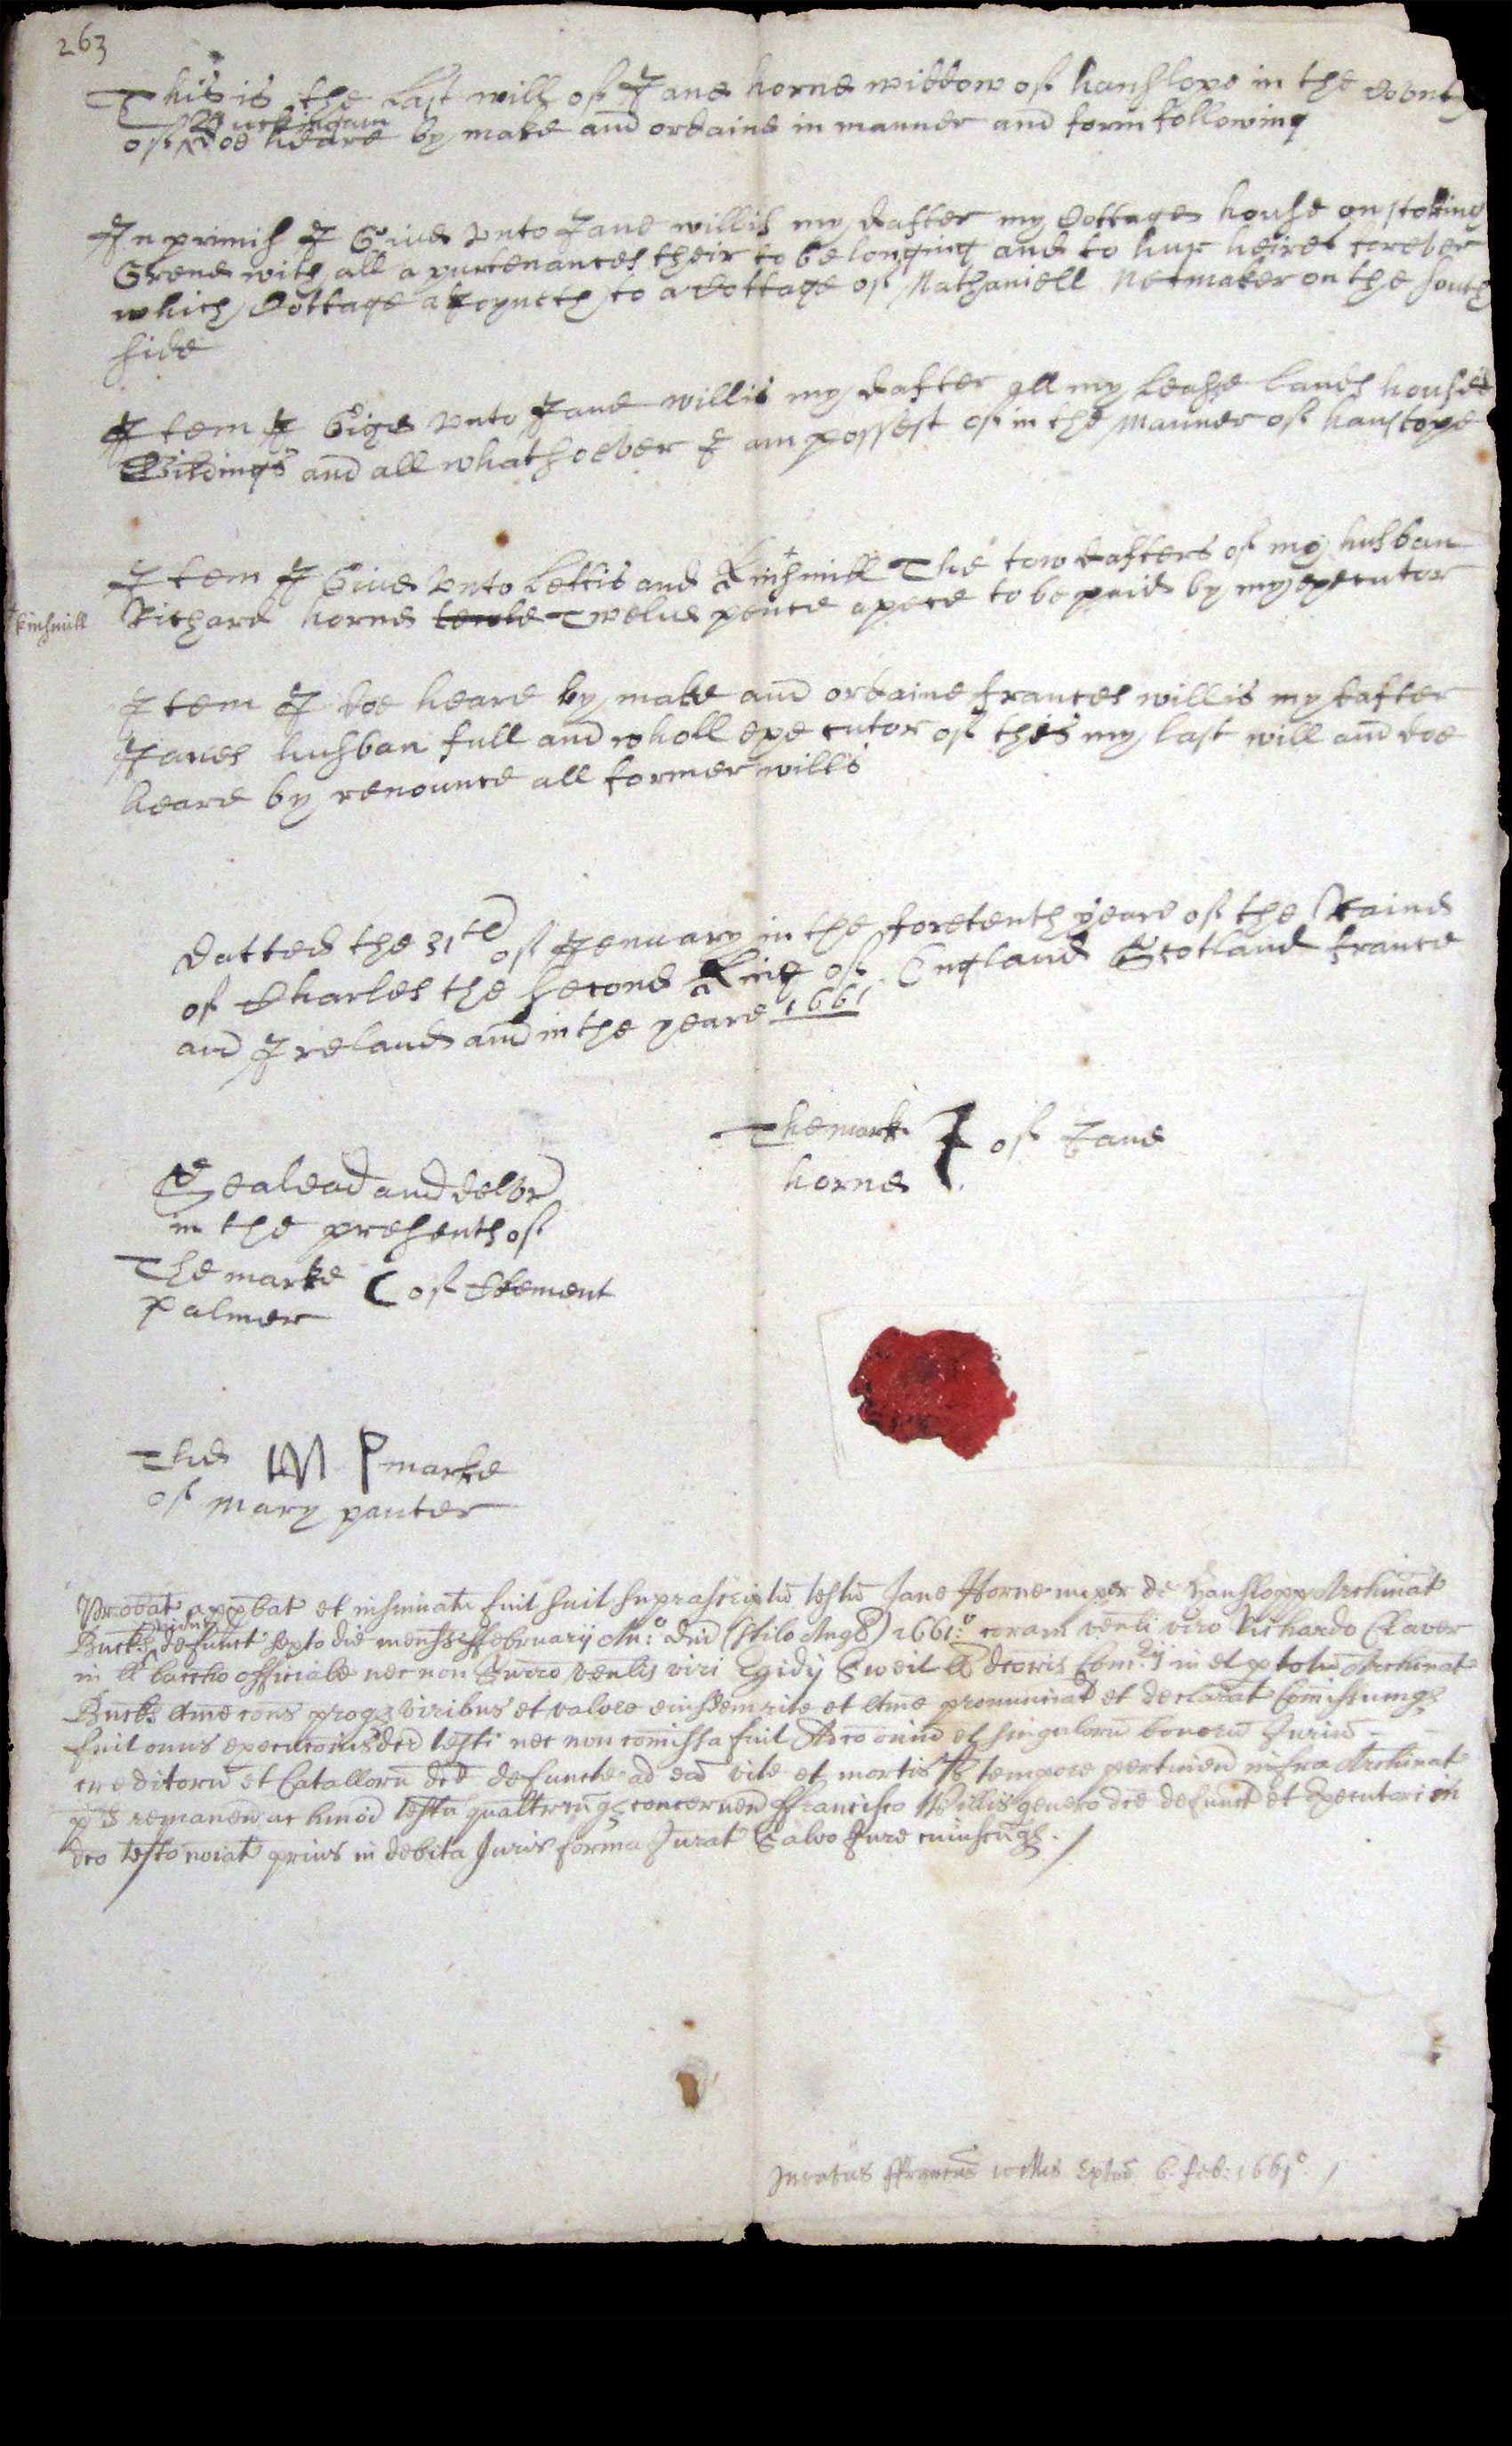 263
This is the Last will of Jane horne widdow of hanslope in the Counti
of Buckingam doe heare by make and ordaine in manner and form following
In primis I Give unto Jane willis my dafter my Cottage house on stoking
Grene with all apurtenances their to be longing and to hur heires forever
which Cottage aJoyneth to a Cottage of Nathaniell Netmaker on the south
side
Item I Give unto Jane willis my dafter all my Lease Lands houses
Bildings and all whathsoever I am possest of in the Manner of hanslope
Item I Give unto Lettis and + Kinsmill The tow dafters of my husban
+ kinsmill
Richard horne Twelve pence apece to be paid by my executor
Item I doe heare by make and ordaine frances willis my dafter
Janes husban full and wholl executor of this my last will and doe
heare by renounce all former wills
Datted the 31th of Jenuary in the foretenth yeare of the Raine
of Charles the second King of England Scotland france
and Ireland and in the yeare 1661
The mark J of Jane
horne
Sealead and delvr
in the presents of
The marke C of Clement
Palmer
The M P marke
of mary panter
Probat approbat et insinuatu fuit fuit suprascriptu testu Jane Horne nuper de Hanslopp Archinat
Bucks vidue defunct septo die mensis ffebruarij An:o Dni (stilo Ange) 1661:o coram venli viro Richardo Claver
in ll baccho officiale nec non Surro venlis viri Egidij Sweit ll dcoris Com:rij in et p totu Archinat
Bucks ltme cons prog viribus et valore eiusdem rite et ltme pronunciat et declarat Comissumq
fuit onus execucois dci testi nec non comissa fuit Adco oniu et singuloru bonoru Juriu
creditoru et Catalloru dce defuncte ad ead vite et mortis tempore pertinen infra Archinat
p'd remanen ac hmoi testu qualtercuq concernen ffrancisco Willis genero dce defunct et Executori in
dco testo noiat prius in debita Juris forma Jurat Salvo Jure cuiuscuq. /
Juratus ffrancus willis Extor 6. feb: 1661o. /